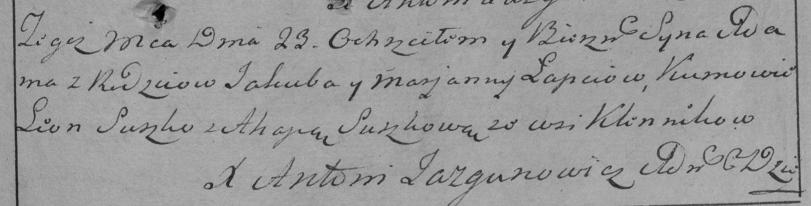 Tegoż Mca Dnia 23. Ochrzciłem y Bierzm Syna Ada
ma z Rodziców Jakuba y Marjanny Łapciow, Kumowie
Leon Suszko z Ahapą Suszkową ze wsi Klonnikow
X Antoni Jazgunowicz Adm C Dzie